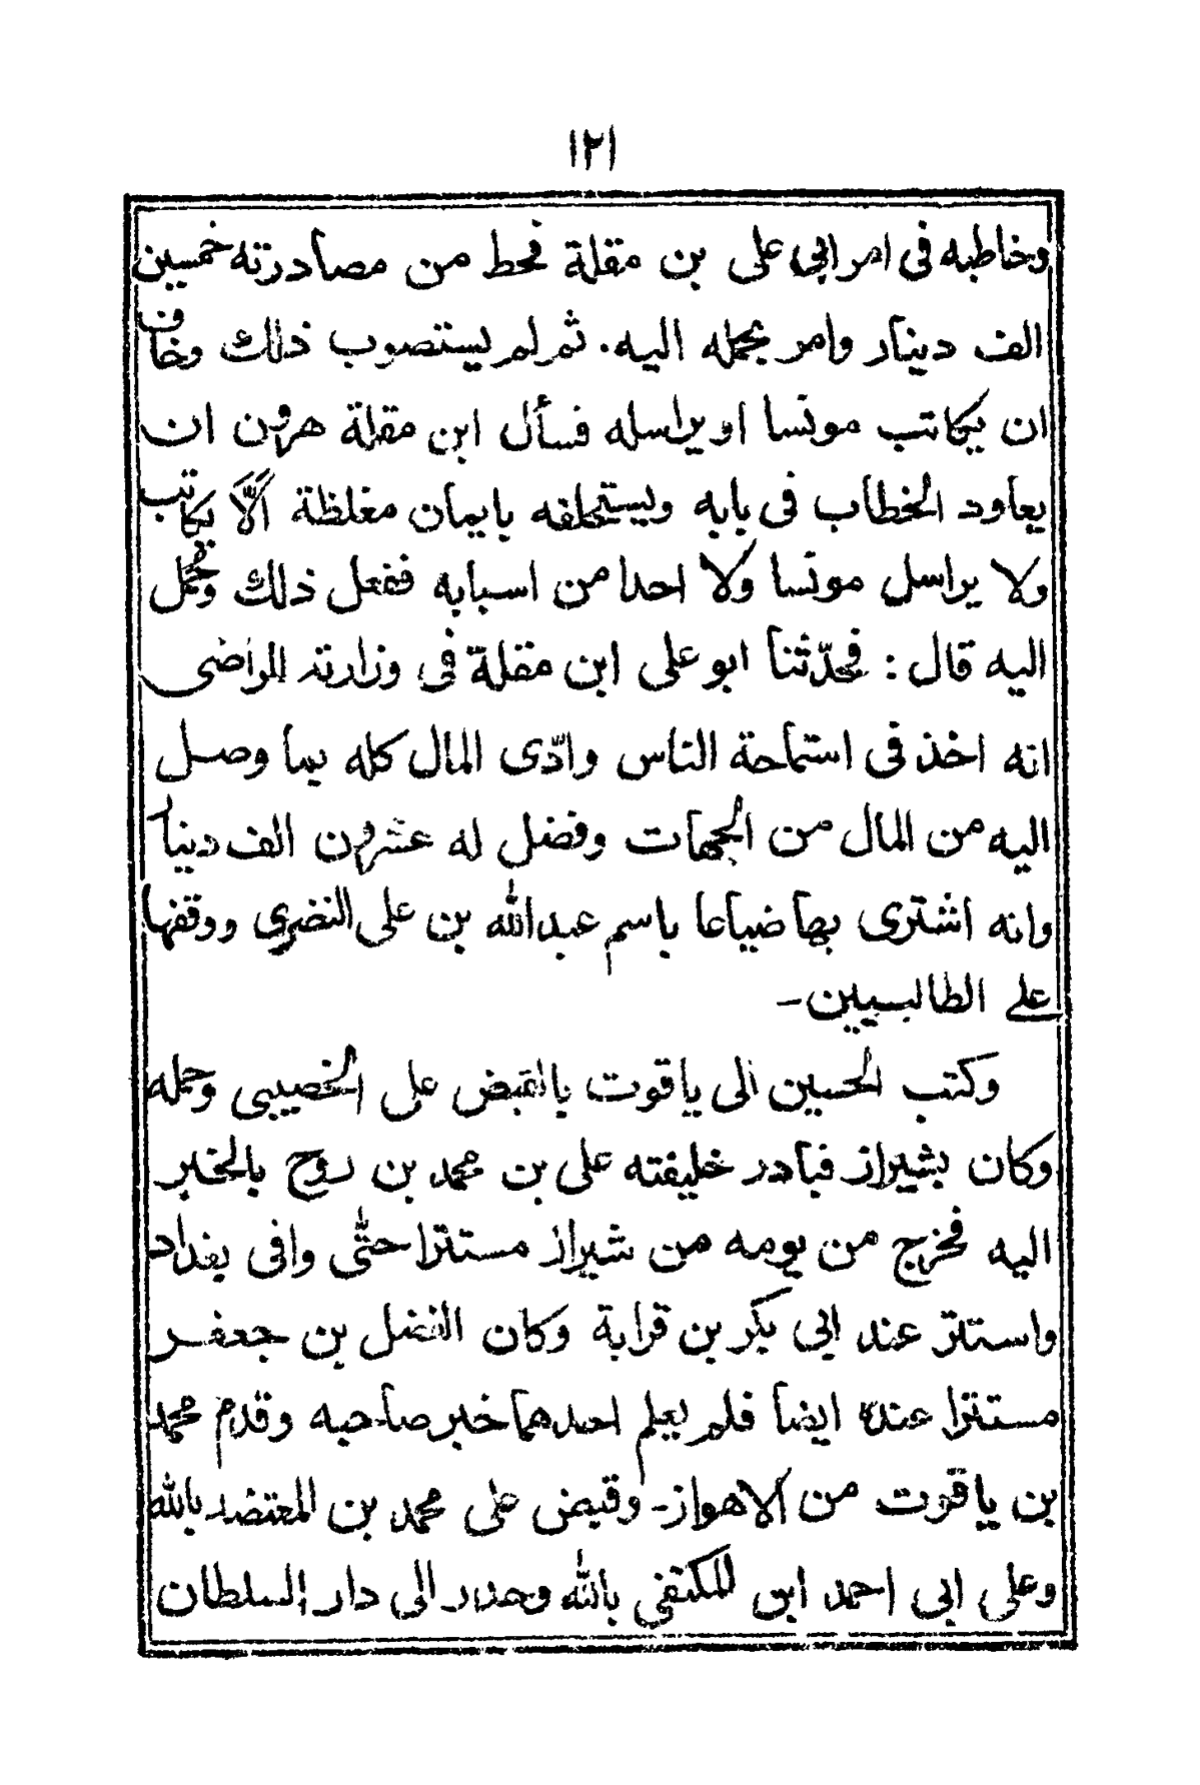 ١٢١
وخاطبه فى امر ابي على بن مقلة فحط من مصادرته خمسين
الف دينار وامر بحمله اليه. ثم لم يستصوب ذلك وخاف
ان يكاتب مونسا او يراسله فسأل ابن مقلة هرون ان
يعاود الخطاب فى بابه ويستحلفه بايمان مغلظة الّا يكاتب
ولا يراسل مونسا ولا احدا من اسبابه ففعل ذلك وحُمل
اليه قال : فحدّثنا ابو على ابن مقلة فى وزارته للراضى
انه اخذ فى استماحة الناس وادّى المال كله بما وصل
اليه من المال من الجهات وفضل له عشرون الف دينار
وانه اشترى بها ضياعا باسم عبدالله بن على النضرى ووقفها
على الطالبيين -
وكتب الحسين الى ياقوت بالقبض على الخصيبى وحمله
وكان بشيراز فبادر خليفته على بن محمد بن روح بالخبر
اليه فخرج من يومه من شيراز مستترا حتّى وافى بغداد
واستتر عند ابى بكر بن قرابة وكان الفضل بن جعفر
مستترا عنده ايضا فلم يعلم احدهما خبر صاحبه وقدم محمد
بن ياقوت من الاهواز - وقبض على محمد بن المعتضد بالله
وعلى ابى احمد ابن المكتفى بالله وحدر الى دار السلطان